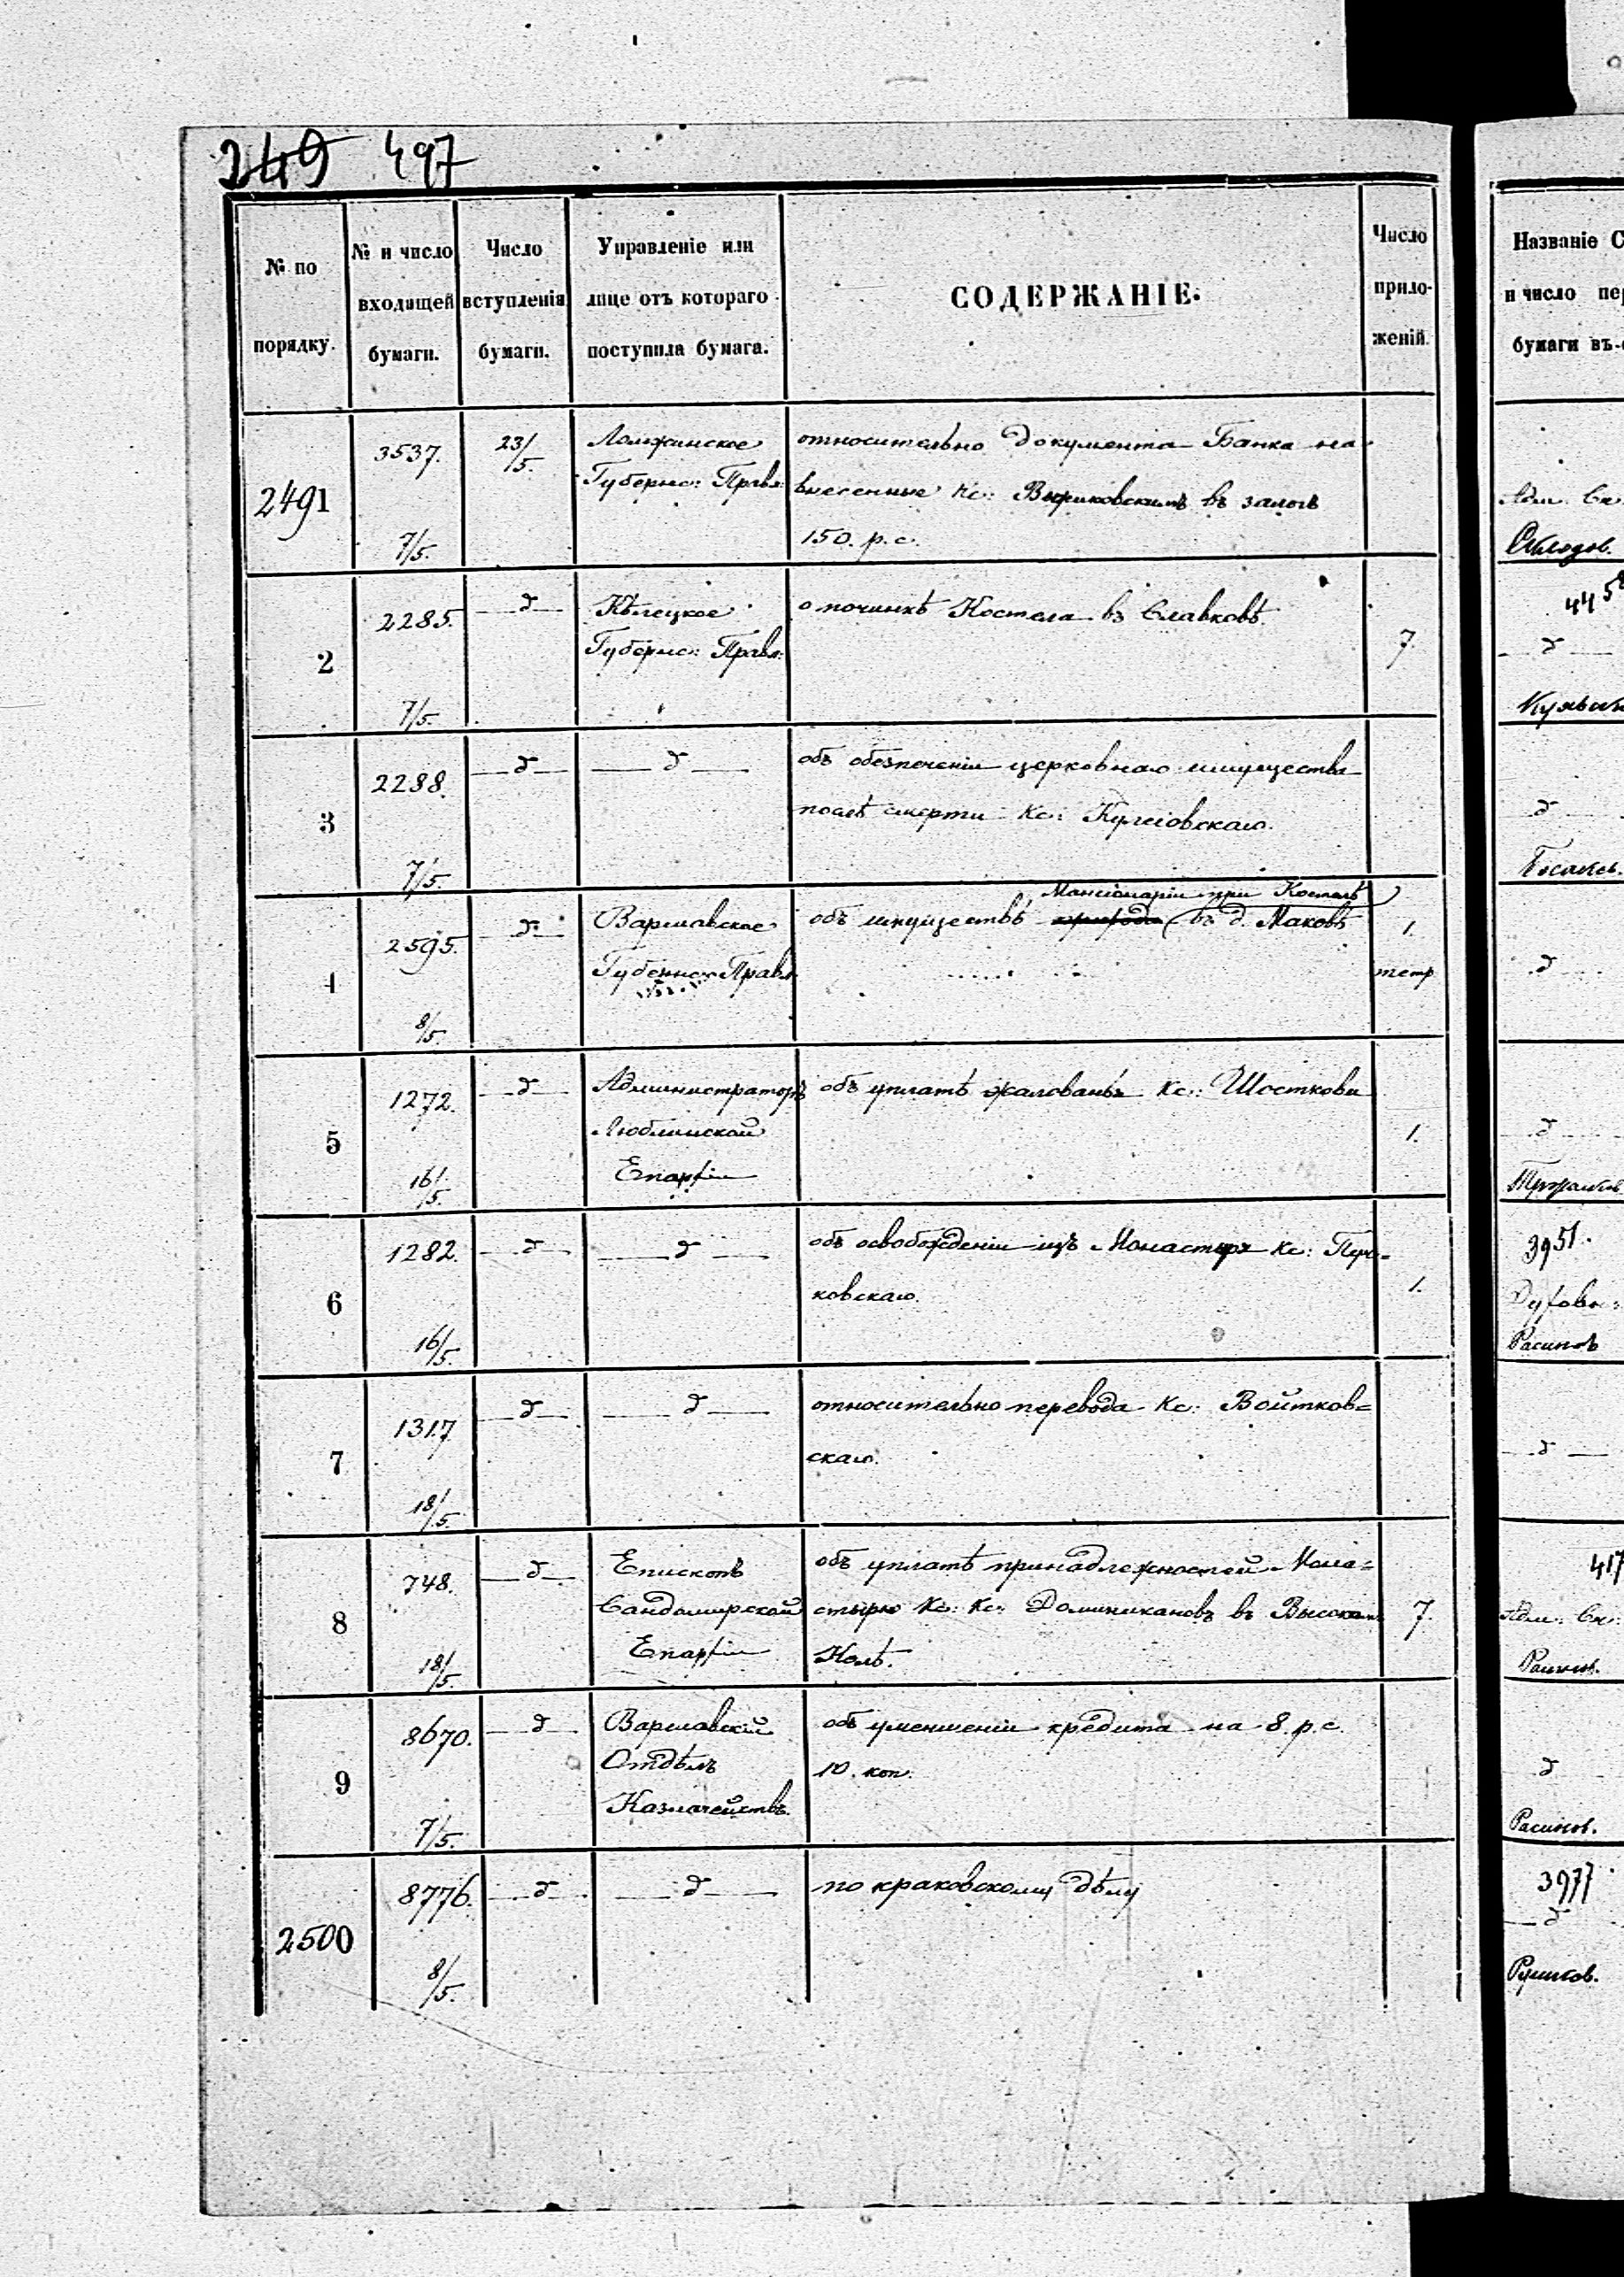 249 497
№ по порядку.
№ и число входящей бумаги.
Число вступленія бумаги.
Управленіе или лице отъ котораго поступила бумага.
СОДЕРЖАНІЕ.
Число прило-женій.
Названіе С
и число пер
бумаги въ
2491
3537.
7/5.
23/5.
Ломжинское
Губернс: Правл:
относительно документа Банка на
внесенные Кс: въ залогъ
150. р. с.
Адм. Ск.
2
2285.
7/5.
д
Кѣлецкое
Губернс: Правл:
о починкѣ Костела въ Славковѣ.
7.
445
д
3
2288.
7/5.
д
д
объ обезпеченіи церковнаго имущества
послѣ смерти Кс:
д
4
2595.
8/5.
д
Варшавское
Губернс: Правл.
Мансіонаріи при Костелѣ
объ имуществѣ въ д. Маковѣ
1.
тетр
д
5
1272.
16/5.
д
Администраторъ
Люблинской
Епархіи
объ уплатѣ жалованья Кс: Шосткови
1.
д
6
1282.
16/5.
д
д
объ освобожденіи изъ Монастыря Кс:
ковскаго.
1.
3951.
Духовн:
7
1317.
18/5.
д
д
относительно перевода Кс: Войтков=
скаго.
д
8
748.
18/5.
д
Епископъ
Сандомирской
Епархіи
объ уплатѣ принадлежностей Мона=
стырю Кс: Кс: Доминикановъ въ Высокомъ
Колѣ.
7.
417
Адм. Ск:
9
8670.
7/5.
д
Варшавскій
Отдѣлъ
Казначействъ.
объ уменшеніи кредита на 8. р. с.
10. коп.
д
2500
8776.
8/5.
д
д
по краковскому дѣлу
3977
д